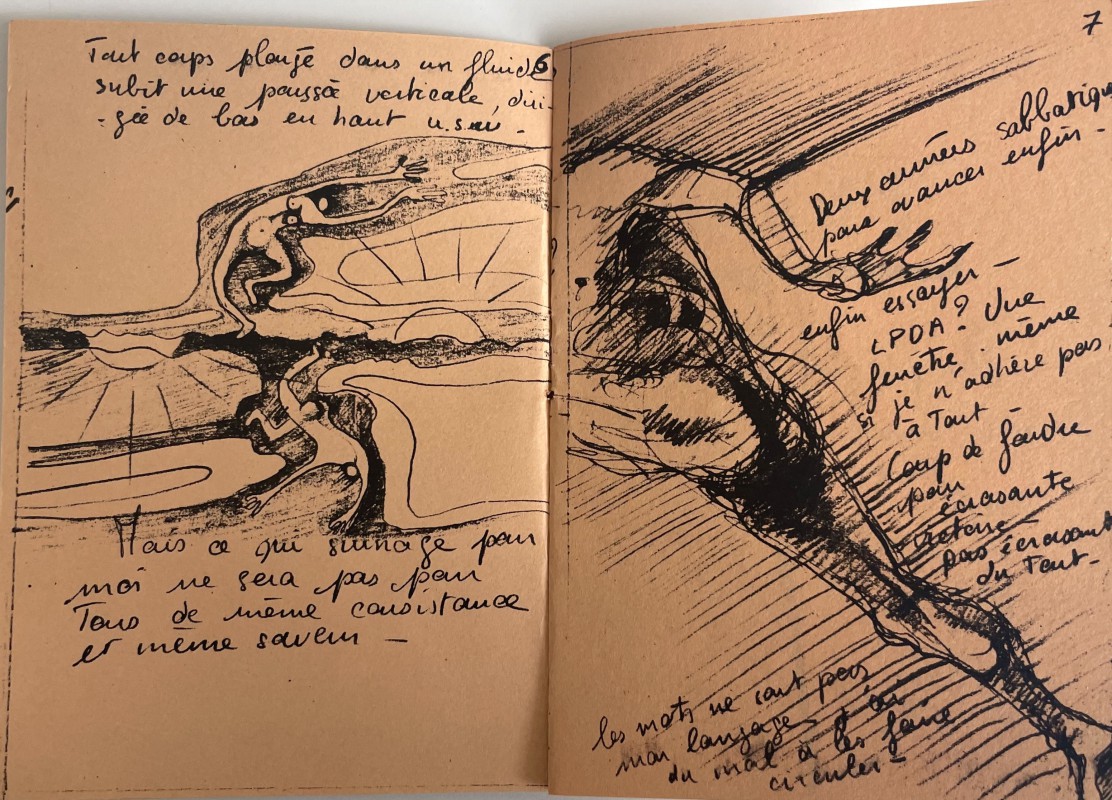 6
Tout corps plongé dans un fluide
subit une poussée verticale, diri-
-gée de bas en haut u.s.w.
Mais ce qui surnage pour
moi ne sera pas pour
Tous de même consistance
et même saveur —
7
Deux années sabbatiques
pour avancer enfin -
enfin essayer —
LPDA ? Une
fenêtre. même
si je n'adhère pas
à Tout
Coup de foudre
pour
écrasante
victoire —
pas écrasant
du Tout -
les mots ne sont pas
mon langage, j'ai
du mal à les faire
circuler -